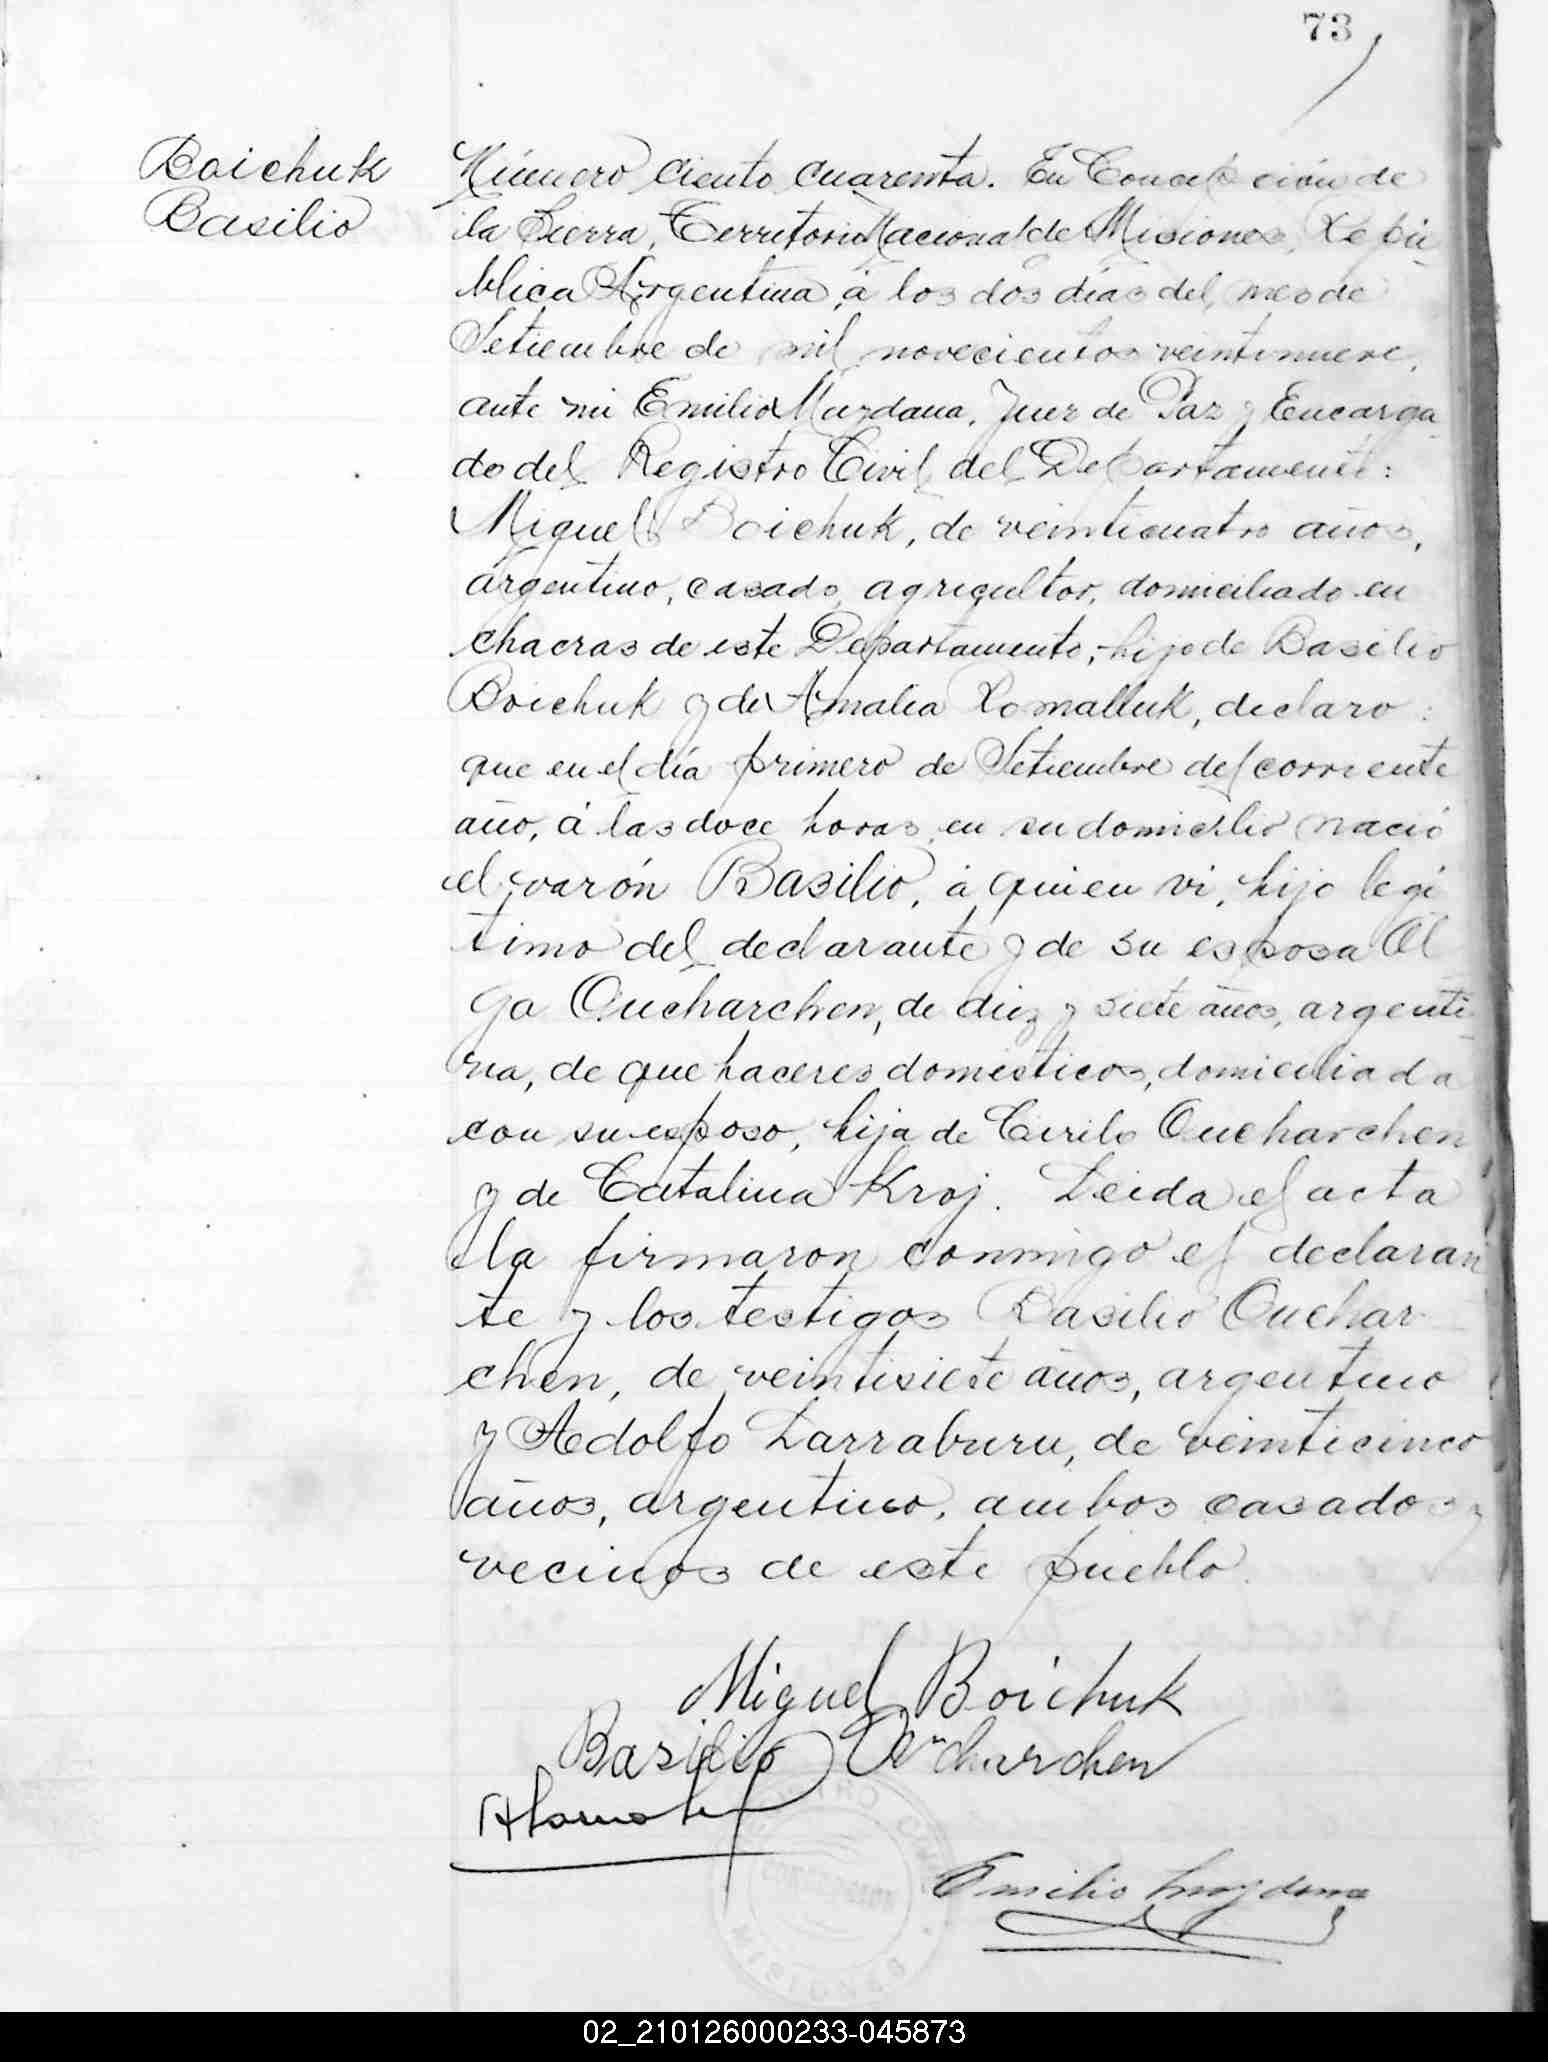 73
Boichuk
Basilio
Número ciento cuarenta. En Concepción de
la Sierra, Territorio Nacional de Misiones, Repú-
blica Argentina, á los dos días del mes de
Setiembre de mil novecientos veintinueve,
ante mi Emilio Muzdana, Juez de Paz y Encarga-
do del Registro Civil del Departamento:
Miguel Boichuk, de veinticuatro años,
argentino, casado, agricultor, domiciliado en
chacras de este Departamento, hijo de Basilio
Boichuk y de Amalia Romalluk, declaro:
que en el día primero de Setiembre del corriente
año, á las doce horas, en su domicilio nació
el varón Basilio, á quien vi, hijo legí
timo del declarante y de su esposa Ol
ga Oucharchen, de diez y siete años, argenti-
na, de que haceres domésticos, domiciliada
con su esposo, hija de Cirilo Oucharchen
y de Catalina Kroj. Leida el acta
la firmaron conmigo el declaran
te y los testigos Basilio Ouchar-
chen, de veintisiete años, argentino
y Adolfo Larraburu, de veinticinco
años, argentino, ambos casados y
vecinos de este pueblo.
Miguel Boichuk
Basilio Oucharchen
Emilio Muzdana
MISIONES
02_210126000233-045873